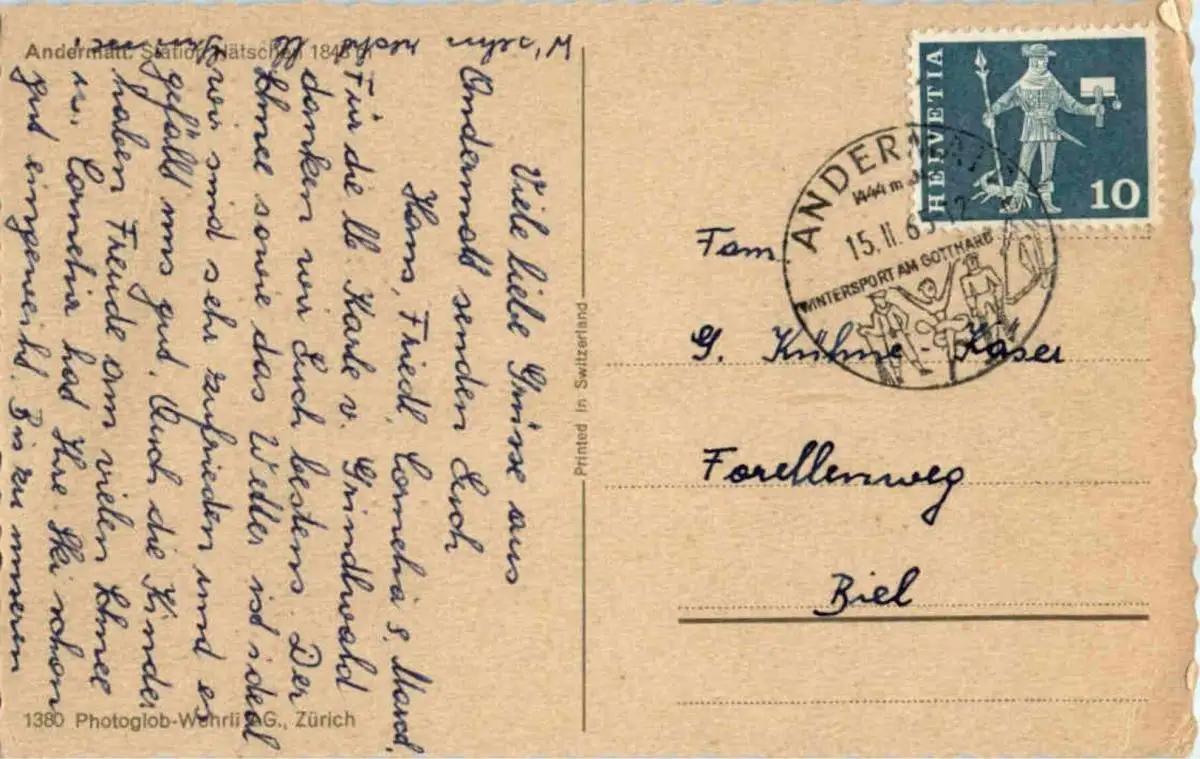 Andermatt. Station Nätschen 1843 m
Viele liebe Grüsse aus
Andermatt senden Euch
Hans, Friedl, Cornelia &
Für die lb. Karte v. Grindlwald
danken wir Euch bestens. Der
Schnee sowie das Wetter ist ideal
wir sind sehr zufrieden und es
gefällt uns gut. Auch die Kinder
haben Freude am vielen Schnee
Cornelia hat Ihre Ski schon
gut eingeweiht. Bis zu unserem
1380 Photoglob-Wehrli AG., Zürich
Printed in Switzerland
HELVETIA
10
ANDERMATT
1444 m
15. II. 65
WINTERSPORT AM GOTTHARD
Fam
G. Kühne-Kaser
Forellenweg
Biel